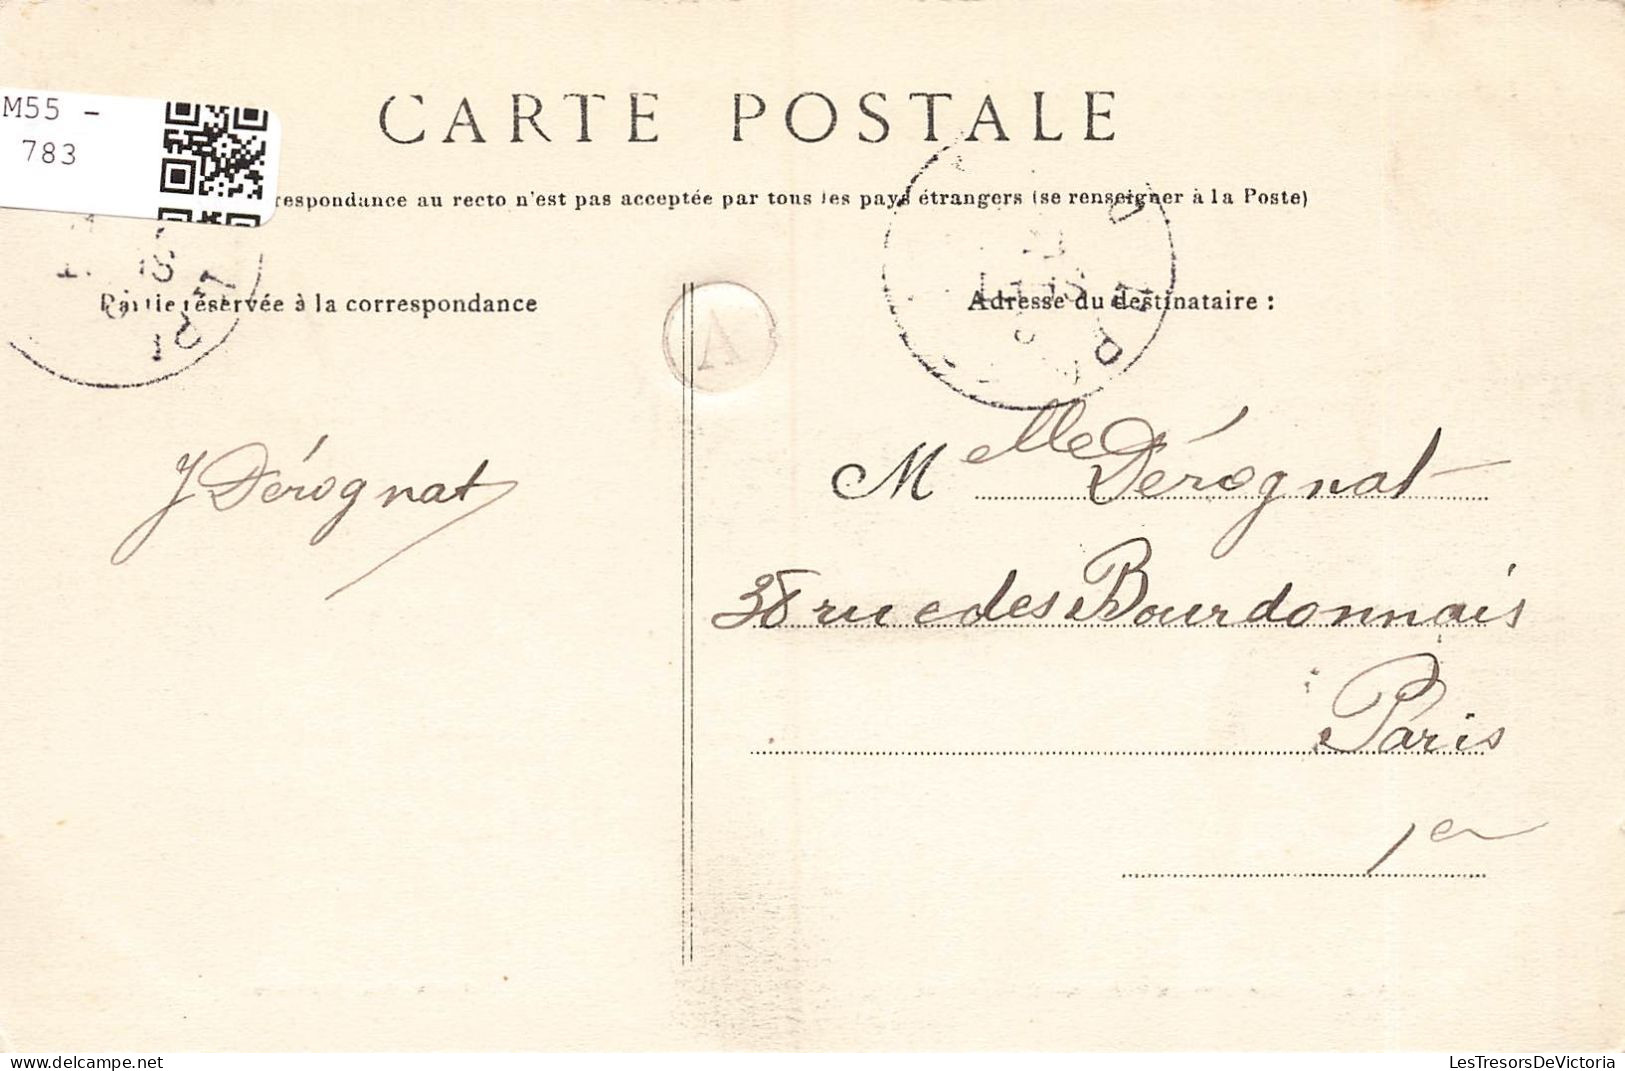 CARTE POSTALE
M55 -
783
respondance au recto n'est pas acceptée par tous les pays étrangers (se renseigner à la Poste)
Partie réservée à la correspondance
Adresse du destinataire :
A
J Dérognat
Melle Dérognat
38 rue des Bourdonnais
Paris
1er
delcampe.net
LesTresorsDeVictoria